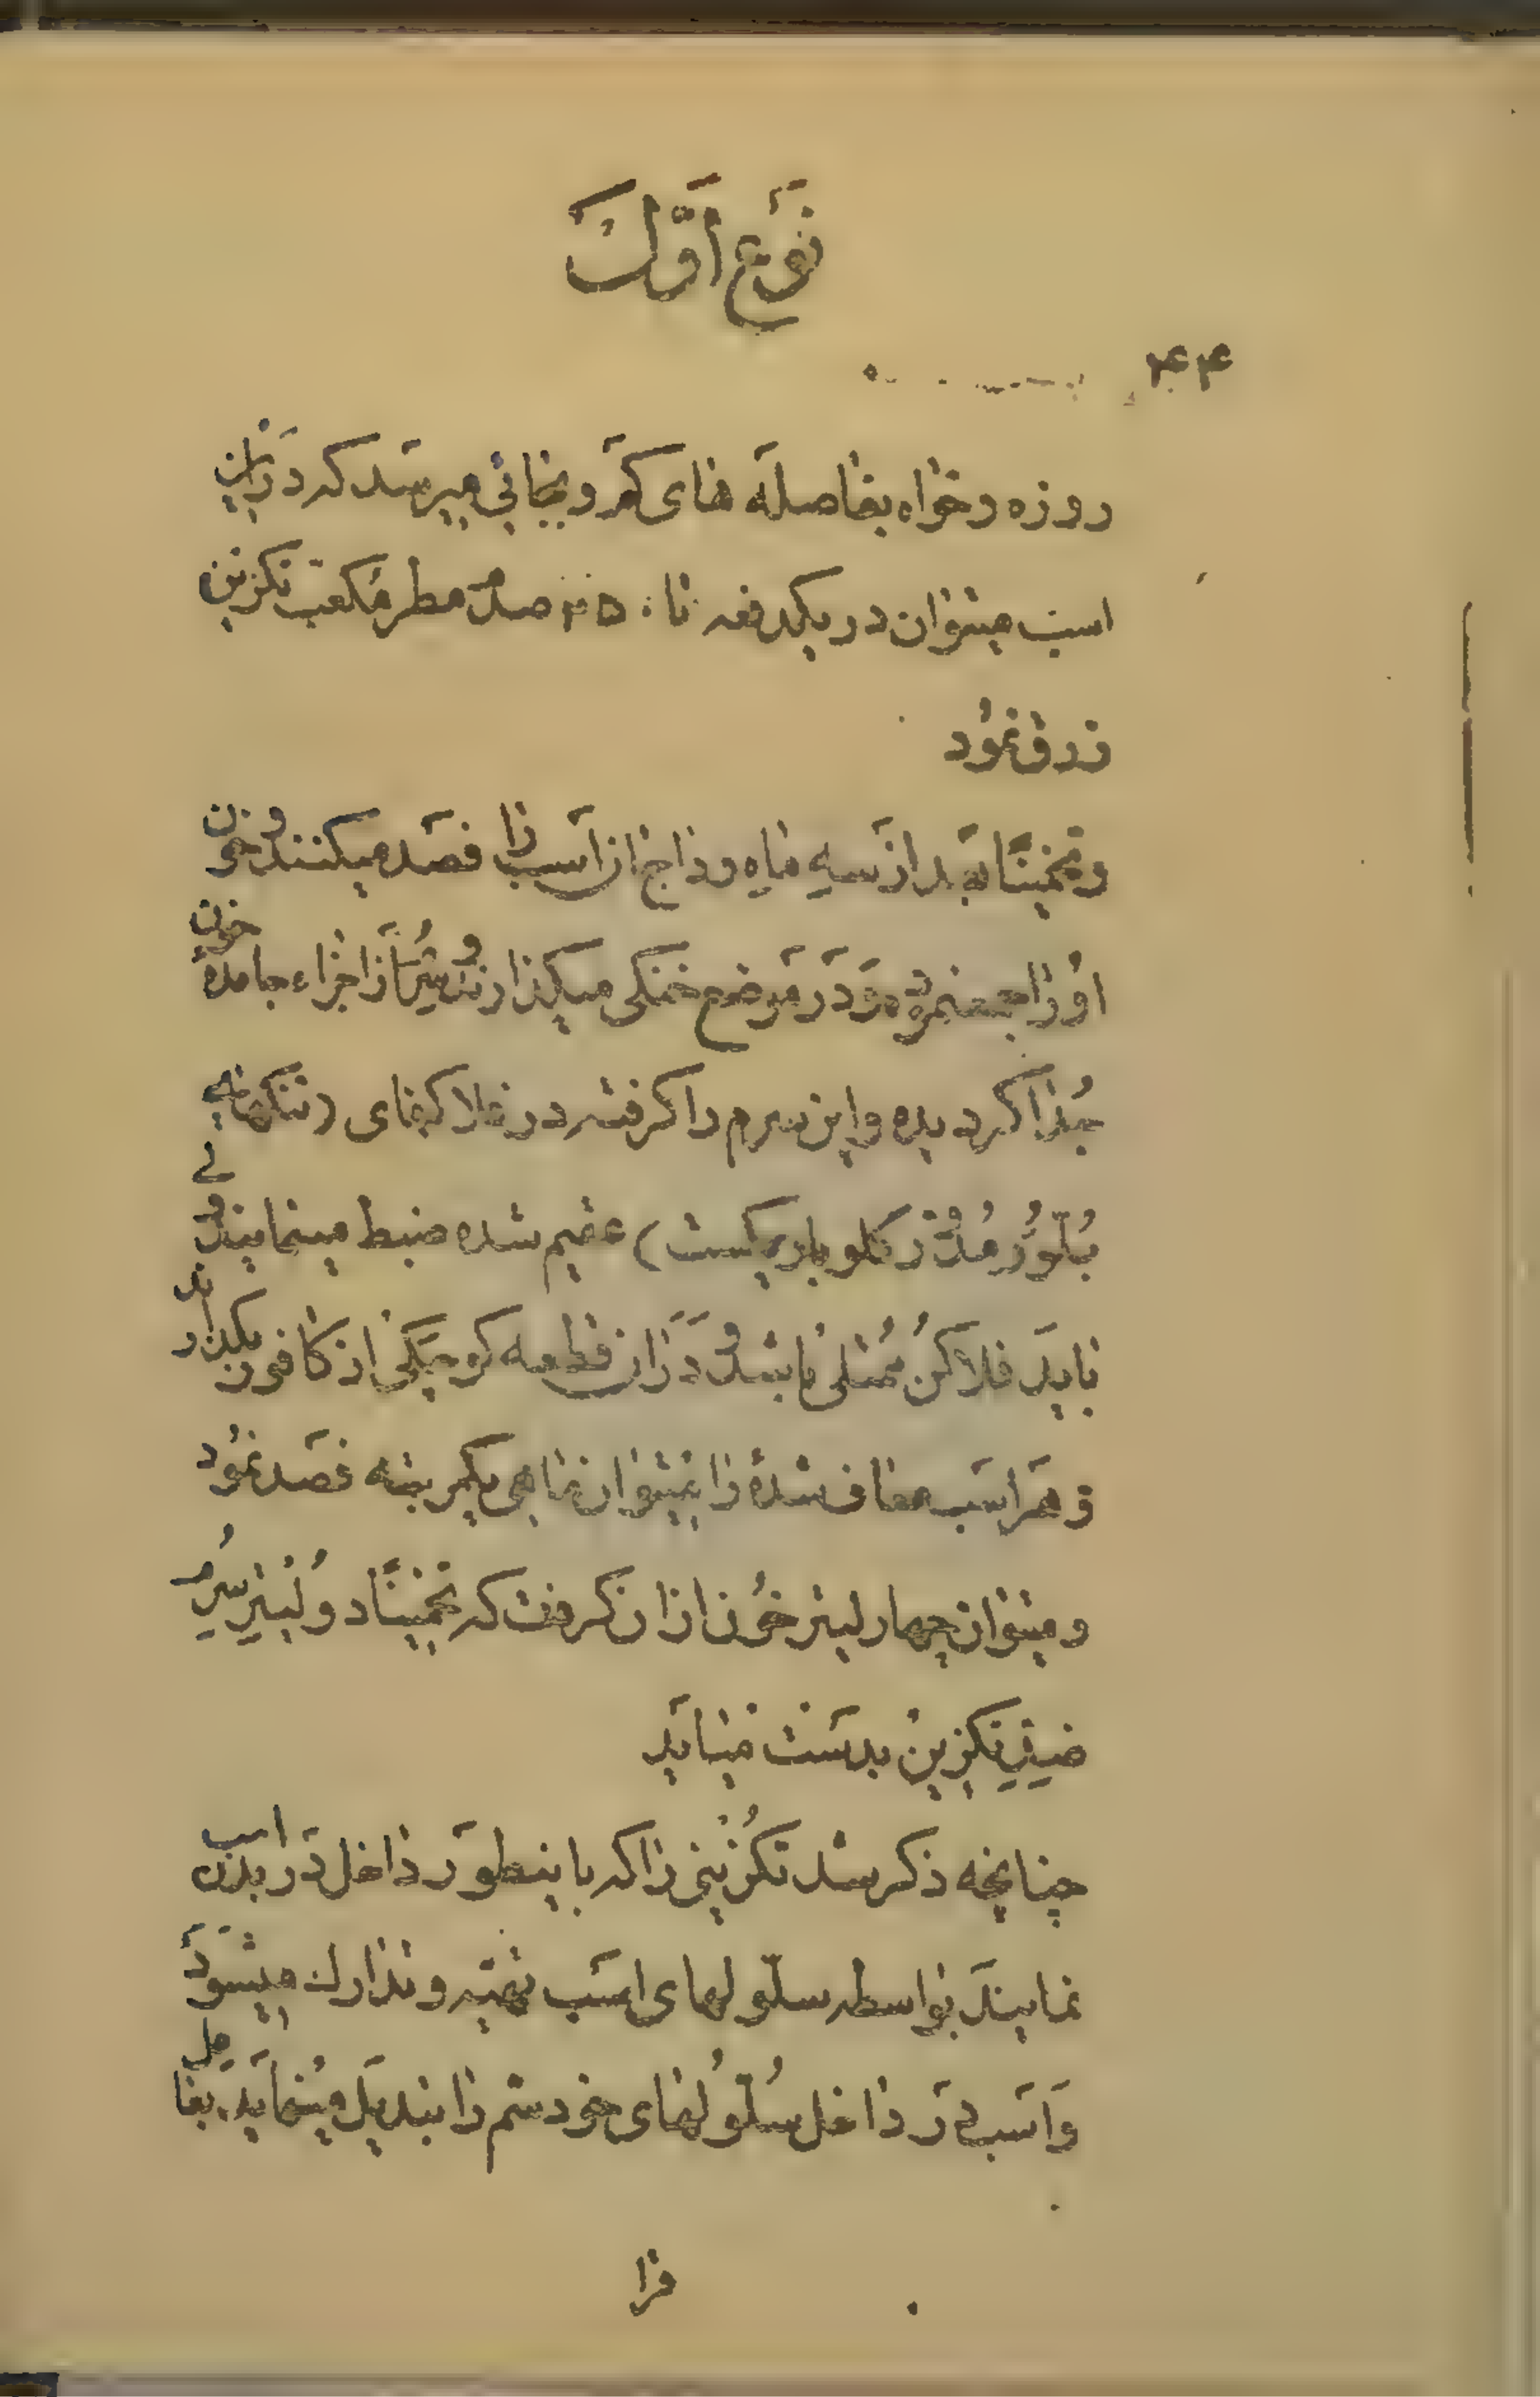 نوع اول
۴۴
روزه و خواه بفاصله های کم و بجائی میرسد که در آن
است میتوان در یکدفعه تا ۲۵۰ صد مطر مکعب تکزین
زرق نمود
و تخمیناً بعد از سه ماه و داج از اسب را فصد میکنند و خون
او را جمع نموده و در موضع خنکی میگذارند و سرم از اجزاء جامده خون
جدا گردیده و این سرم را گرفته در فلاکهای (تنگهای
بلور مدور گلو باریکست) عقیم شده ضبط مینمایند و نه
باید فلاکن ممتلی باشد و در آن قطعه کوچکی از کافور بگذارند
و هر اسب معاف شده را میتوان ماهی یکمرتبه فصد نمود
و میتوان چهار لیتر خون از آن گرفت که تخمیناً دو لیتر سرم
ضد تکزین بدست میآید
چنانچه ذکر شد تکزینی را که باینطور داخل در بدن اسب
نمایند بواسطه سلولهای اسب تهیه و تدارک میشود
و اسب در داخل سلولهای خود سم را تبدیل مینماید بعامل
فرا